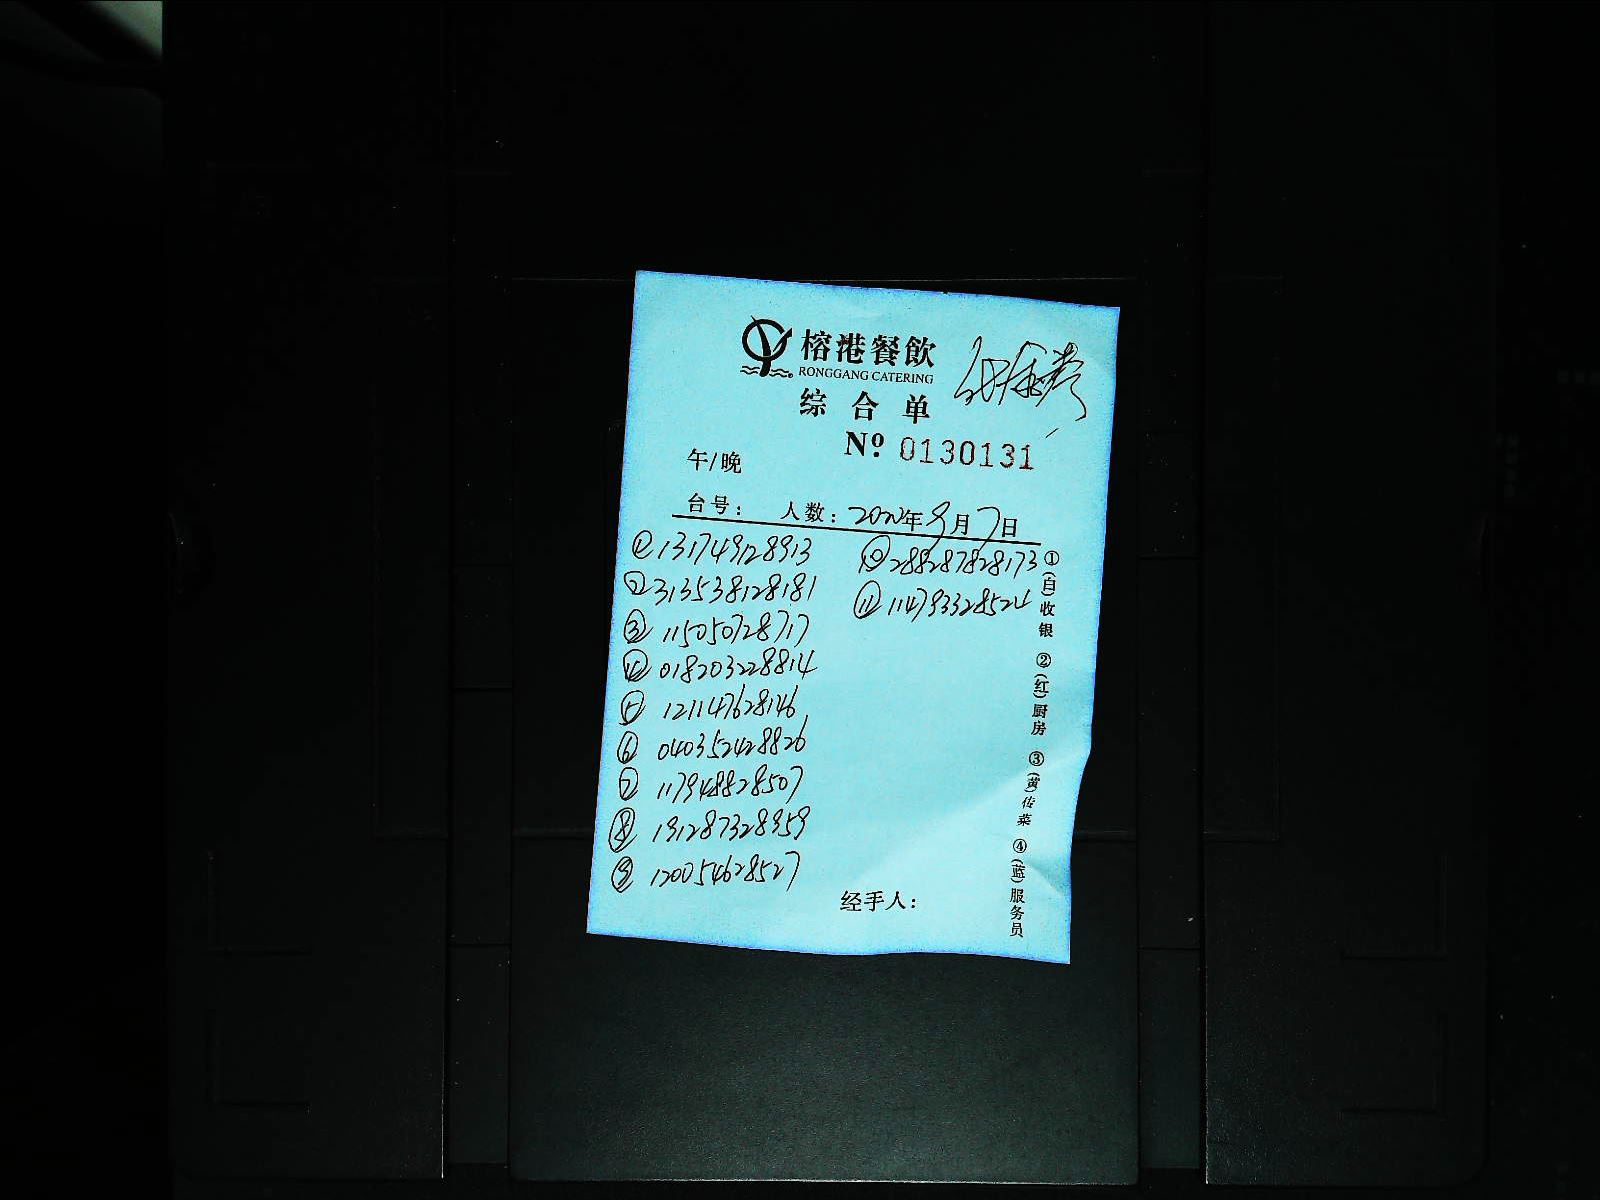 榕港餐飲
RONGGANG CATERING
综合单
Nº 0130131
午/晚
台号: 人数: 202年9月7日
① 131749128913
② 313538128181
③ 115050728717
④ 018203228814
⑤ 121147628146
⑥ 040352428826
⑦ 117948828507
⑧ 191287328959
⑨ 120054628527
⑩ 288287828173
⑪ 114793328524
经手人:
①(白)收银 ②(红)厨房 ③(黄)传菜 ④(蓝)服务员